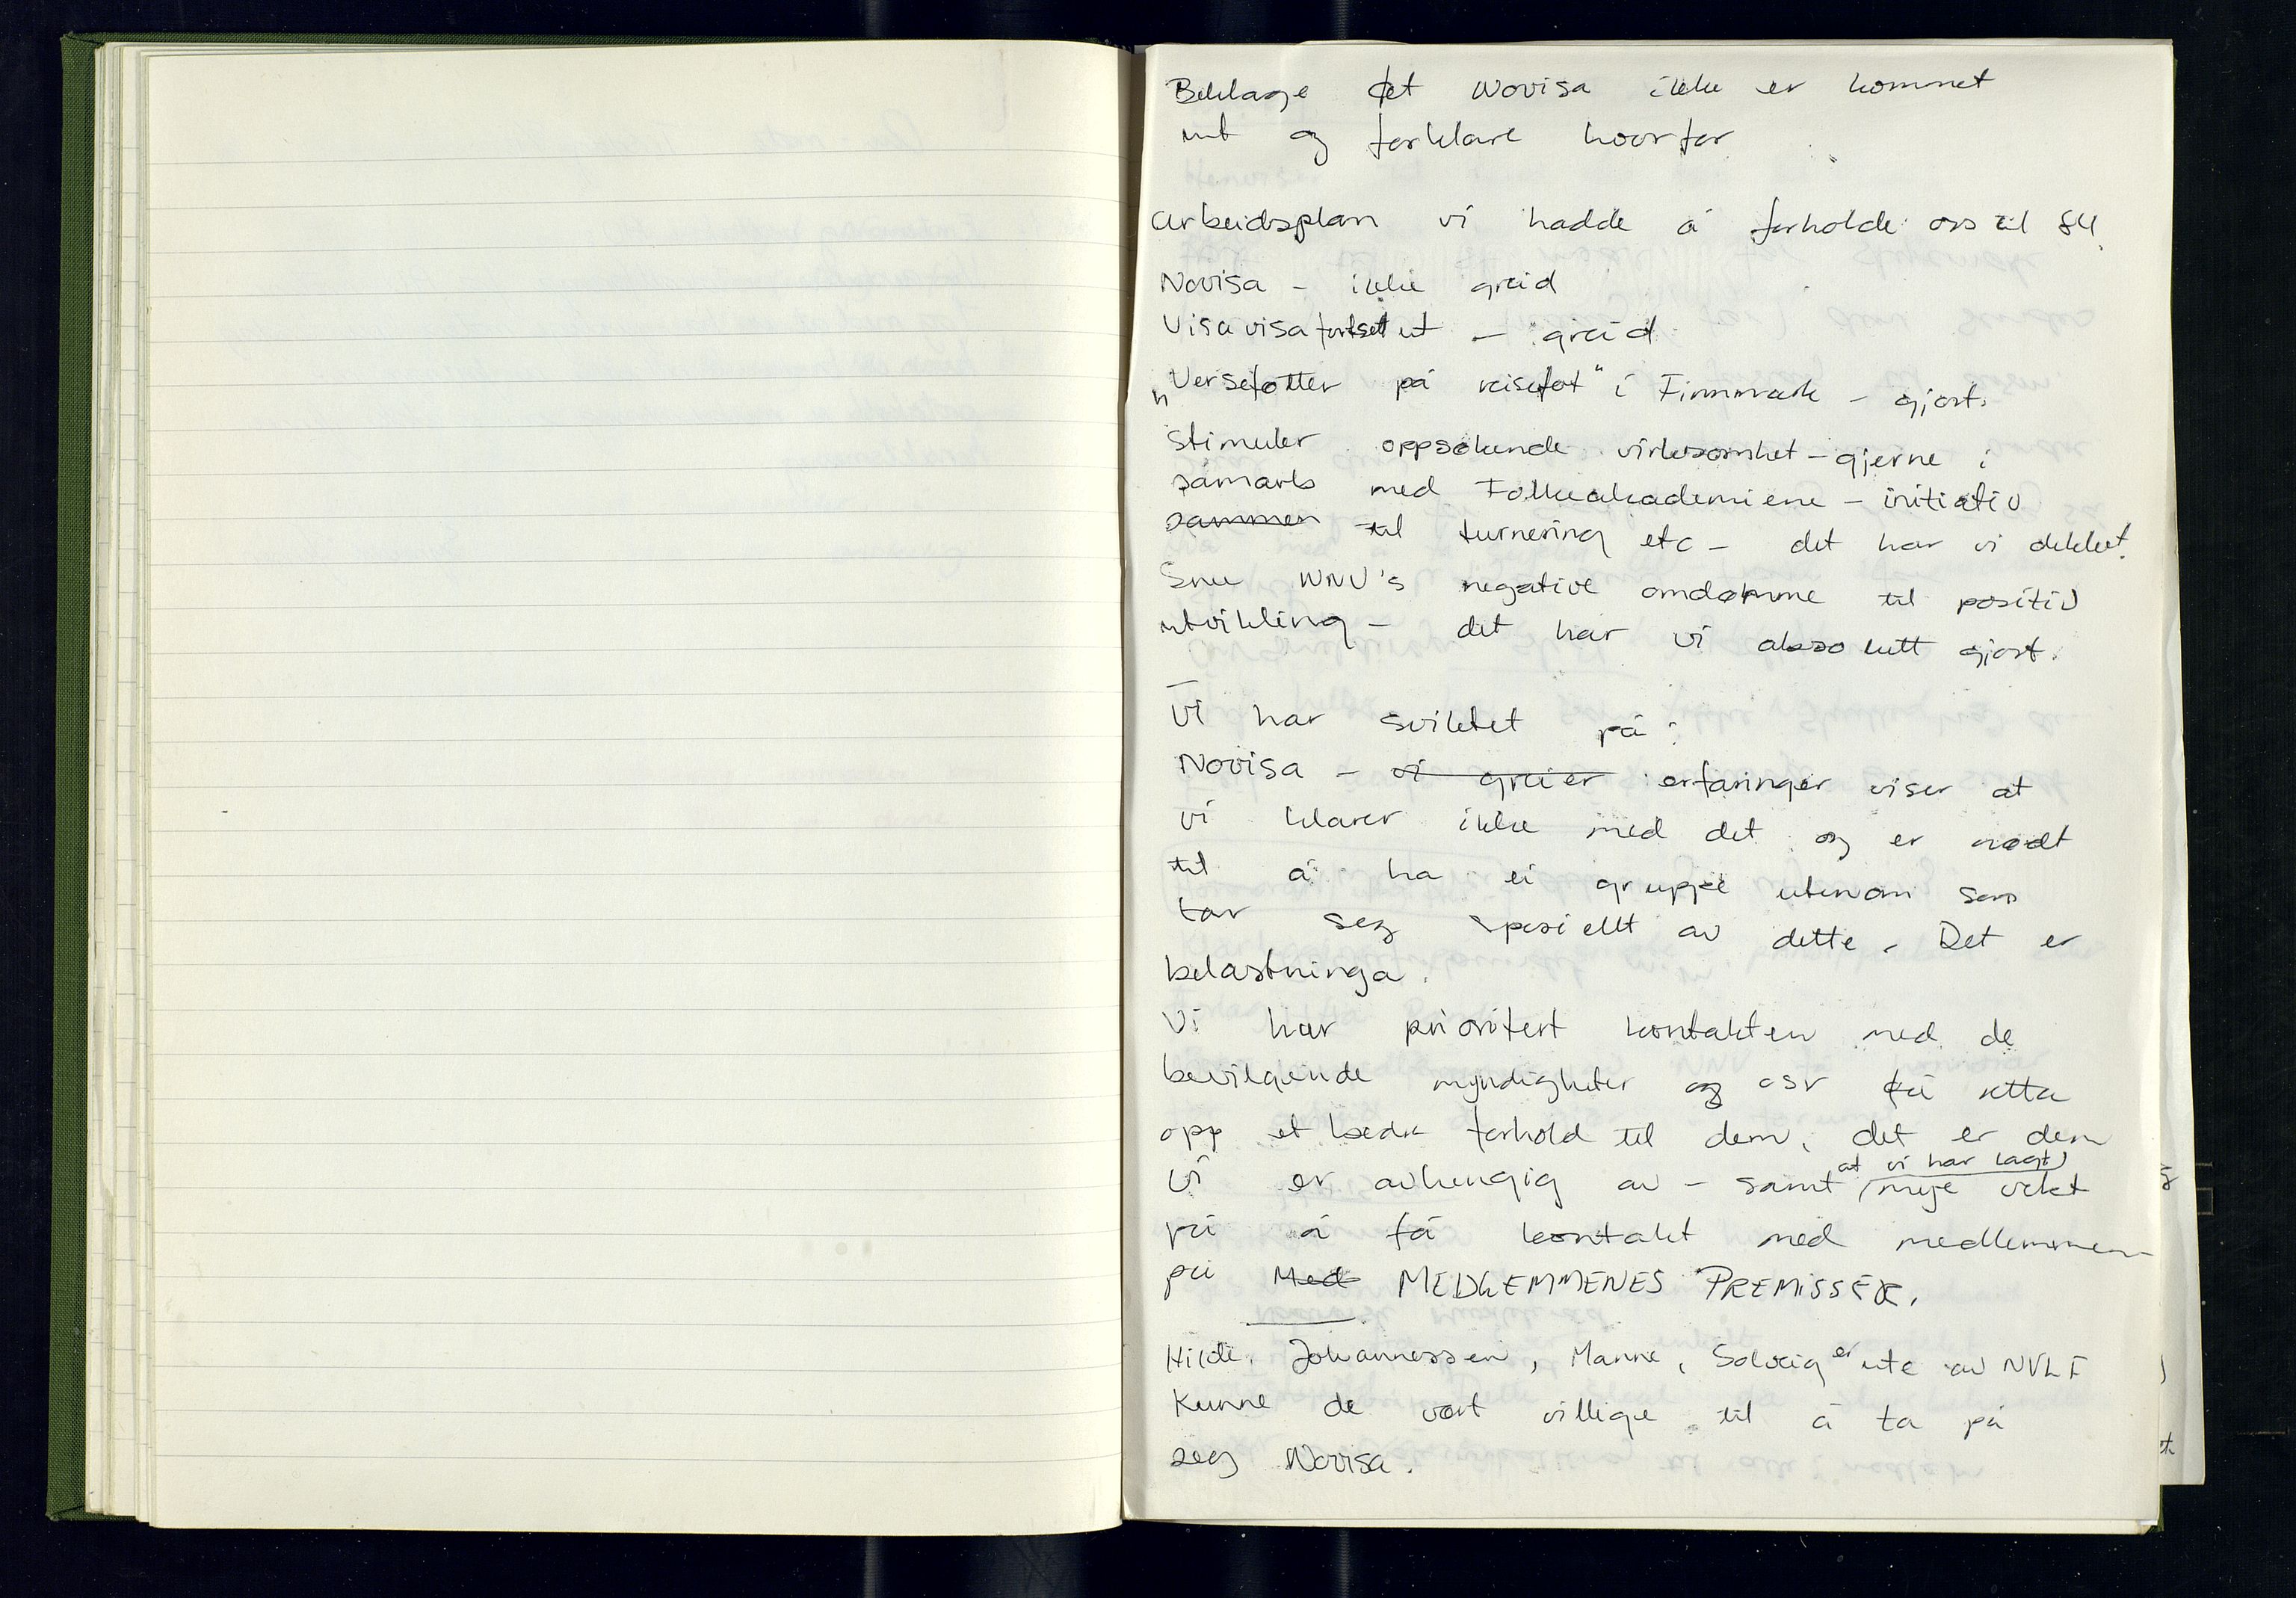 Beklage det Novisa ikke er kommet
ut og forklare hvorfor
Arbeidsplan vi hadde å forholde oss til 84.
Novisa - ikke greid
Visavisa fortsett ut - greid
"Versefötter på reisefot" i Finnmark - gjort.
Stimuler oppsøkende virksomhet - gjerne i
samarb med Folkeakademiene - initiativ
sammen til turnering etc - det har vi dekket.
Snu NNV's negative omdømme til positiv
utvikling - det har vi absolutt gjort.
Vi har sviktet på:
Novisa - vi greier erfaringer viser at
vi klarer ikke med det og er nødt
til å ha ei gruppe utenom som
tar seg spesiellt av dette. Det er
belastninga.
Vi har prioritert kontakten med de
bevilgende myndigheter og osv få retta
opp et bedre forhold til dem, det er dem
vi er avhengig av - samt at vi har lagt mye vekt
på å få kontakt med medlemmen
på Med MEDLEMMENES PREMISSER.
Hilde Johannessen, Manne, Solveig er ute av NVLF
Kunne de vært villige til å ta på
seg Novisa.